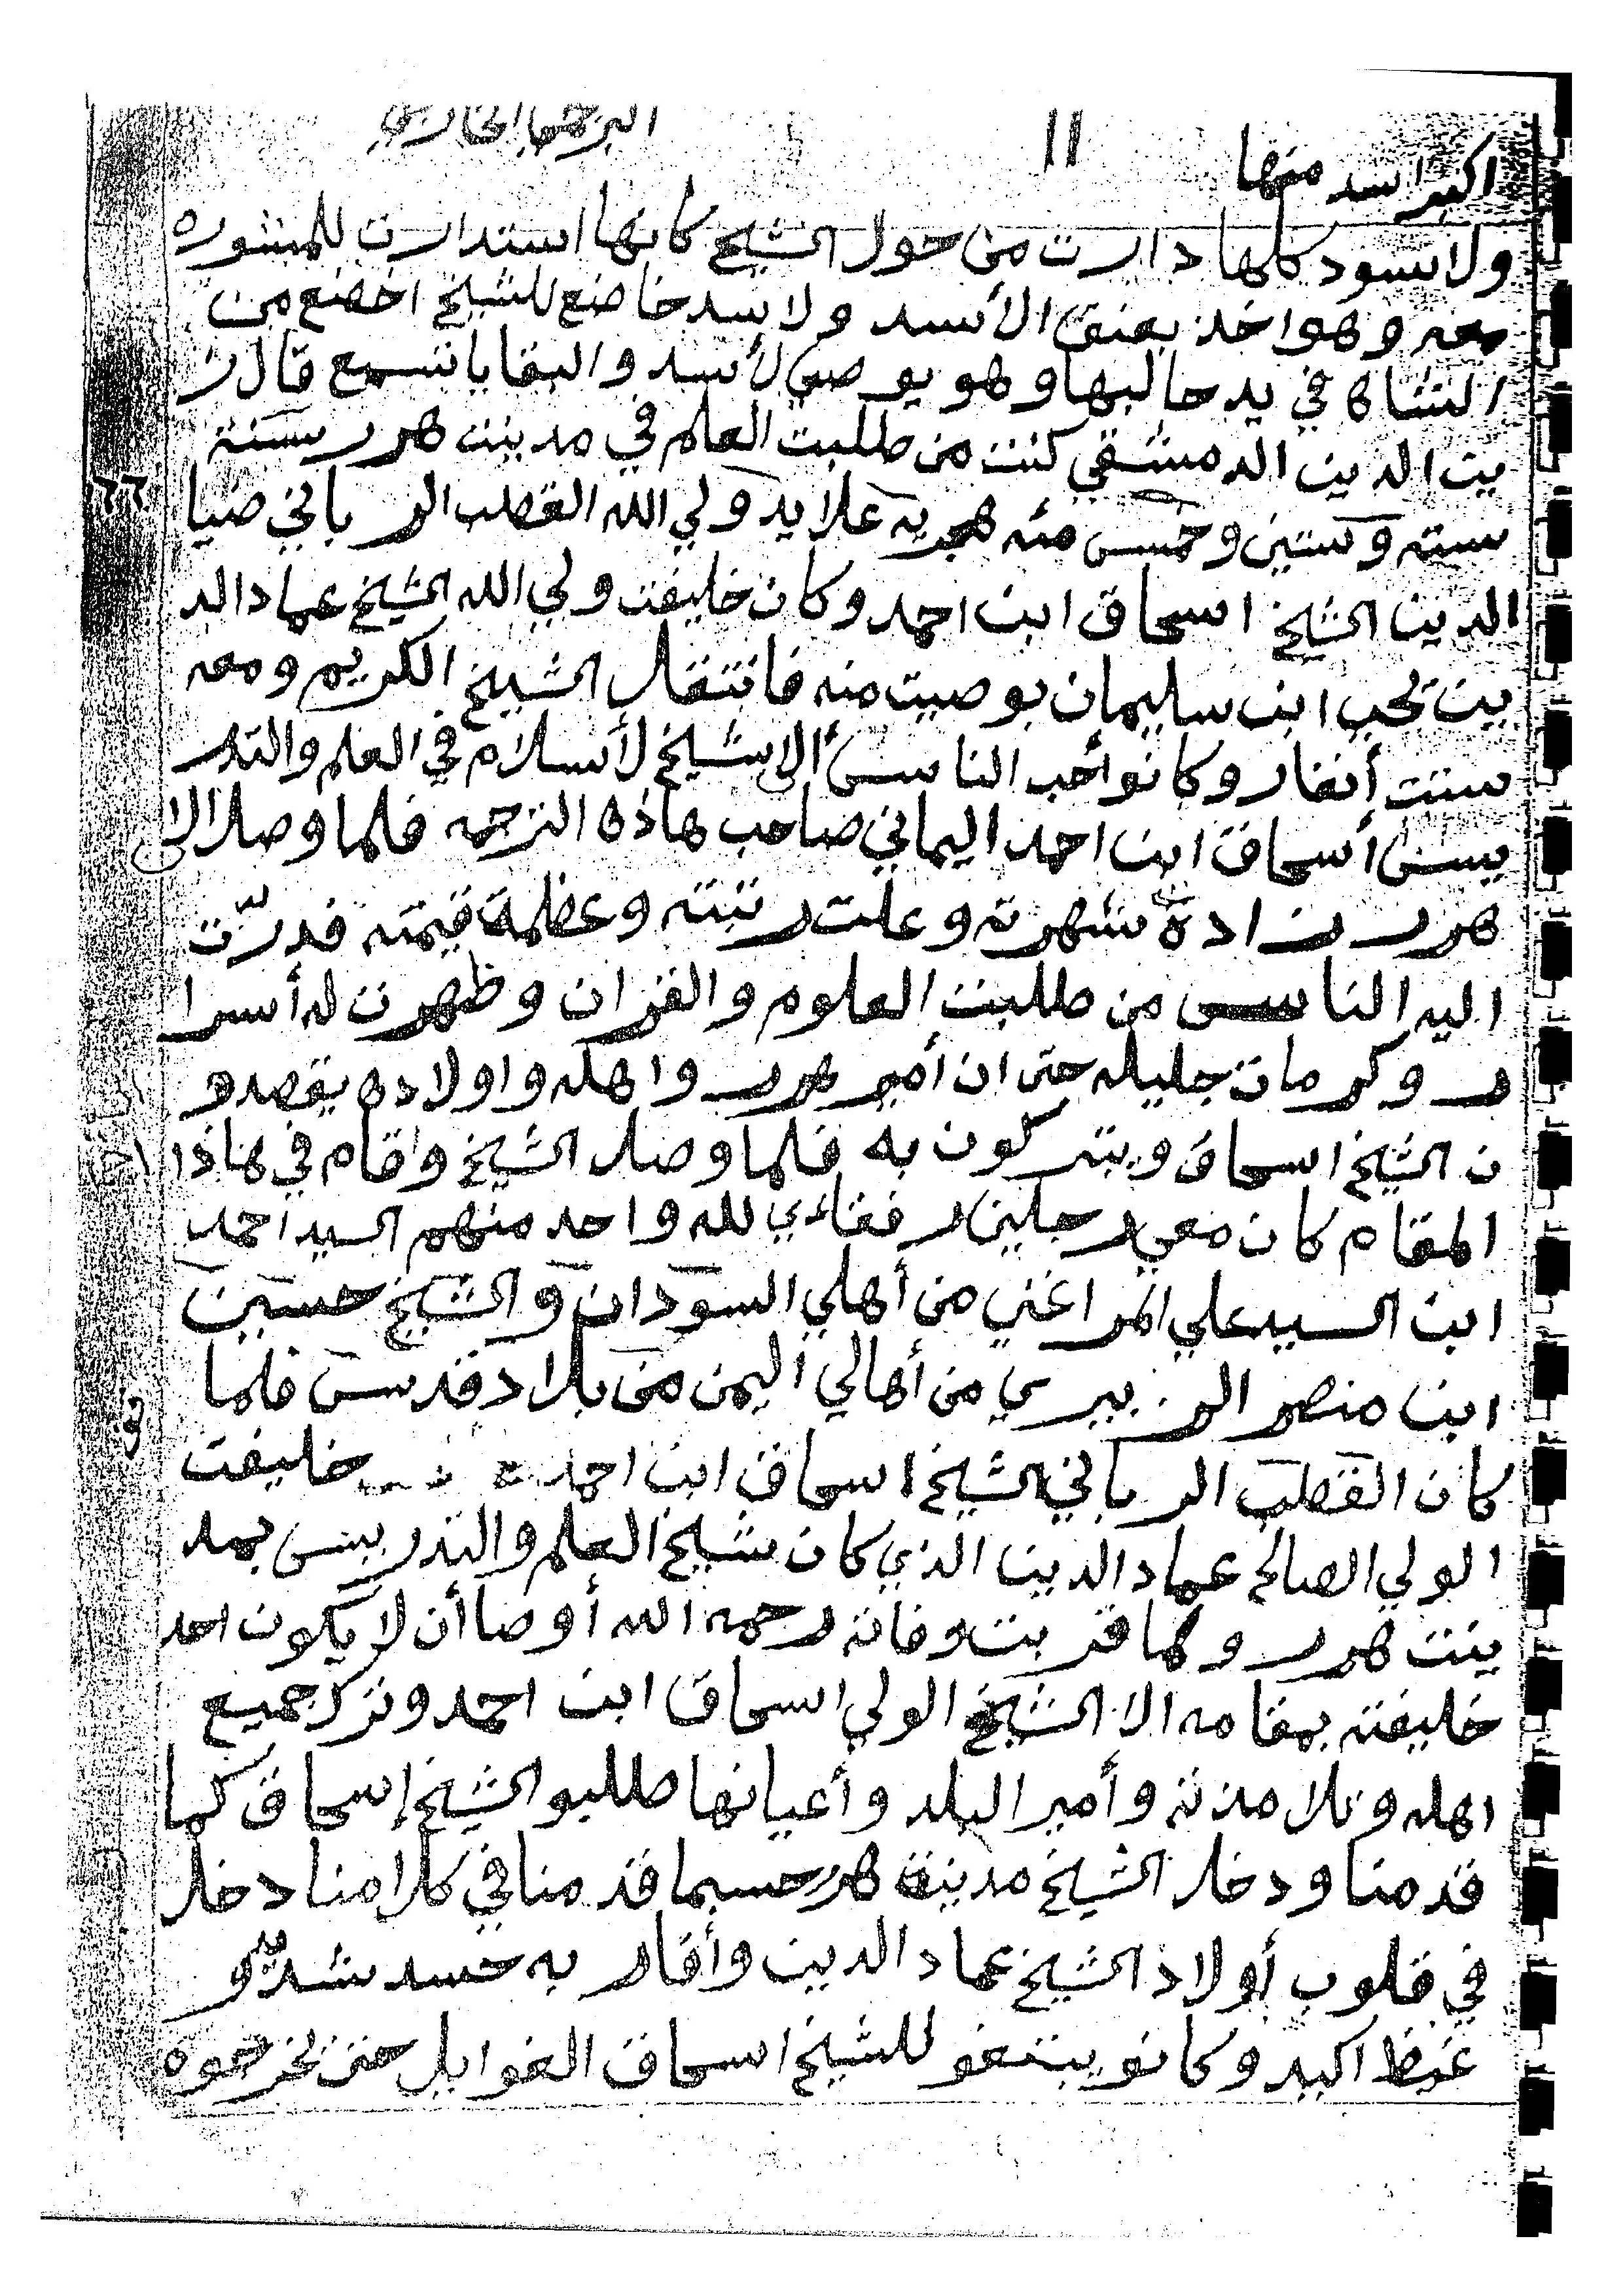 11
اكبر اسد منها
ولا سود كلها دارت من حول الشيخ كانها استدارت للمشوره
معه وهو اخذ بعنق الأسد ولا سد خاضع للشيخ اخضع من
الشاة في يد حالبها وهو يوصي لأسد والبقايا تسمع قال ز
ين الدين الدمشقي كنت من طلبت العلم في مدينت هرر سنة
سته وستين وخمس مئه هجريه علا يد ولي الله القطب الرباني ضيا
الدين الشيخ اسحاق ابن احمد وكان خليفت ولي الله الشيخ عماد الد
ين يحي ابن سليمان بوصيت منه فانتقل الشيخ الكريم ومعه
ستت أنفار وكانو أحب الناس ألى شيخ لأسلام في العلم والتدر
يس أسحاق ابن احمد اليماني صاحب هاذه الترجمه فلما وصل الى
هرر زادة شهرته وعلت رتبته وعظمة قيمته فدرّت
اليه الناس من طلبت العلوم والقران وظهرت له أسرا
ر وكرمات جليله حتى ان أمير هرر واهله واولاده يقصدو
ن الشيخ اسحاق ويتبركون به فلما وصل الشيخ واقام في هاذا
المقام كان معي رجلين رفقاءي لله واحد منهم السيد احمد
ابن السيد علي المراغني من أهلي السودان والشيخ حسين
ابن منصر الزبيري من أهالي اليمن من بلاد قدس فلما
كان القطب الرباني الشيخ اسحاق ابن احمد خليفت
الولي الصالح عماد الدين الذي كان شيخ العلم والتدريس بمد
ينت هرر ولما قربت وفاته رحمه الله أوصا أن لا يكون احد
خليفته بمقامه الا الشيخ الولي اسحاق ابن احمد وترك جميع
اهله وتلامذته وأمير البلد وأعيانها طلبو الشيخ إسحاق كما
قدمنا ودخل الشيخ مدينة هرر حسبما قدمنا في كلامنا دخل
في قلوب أولاد الشيخ عماد الدين وأقاربه حسد شد و
غيظ اكبد وكانو يبتغو للشيخ اسحاق الغوايل حتى يخرجوه